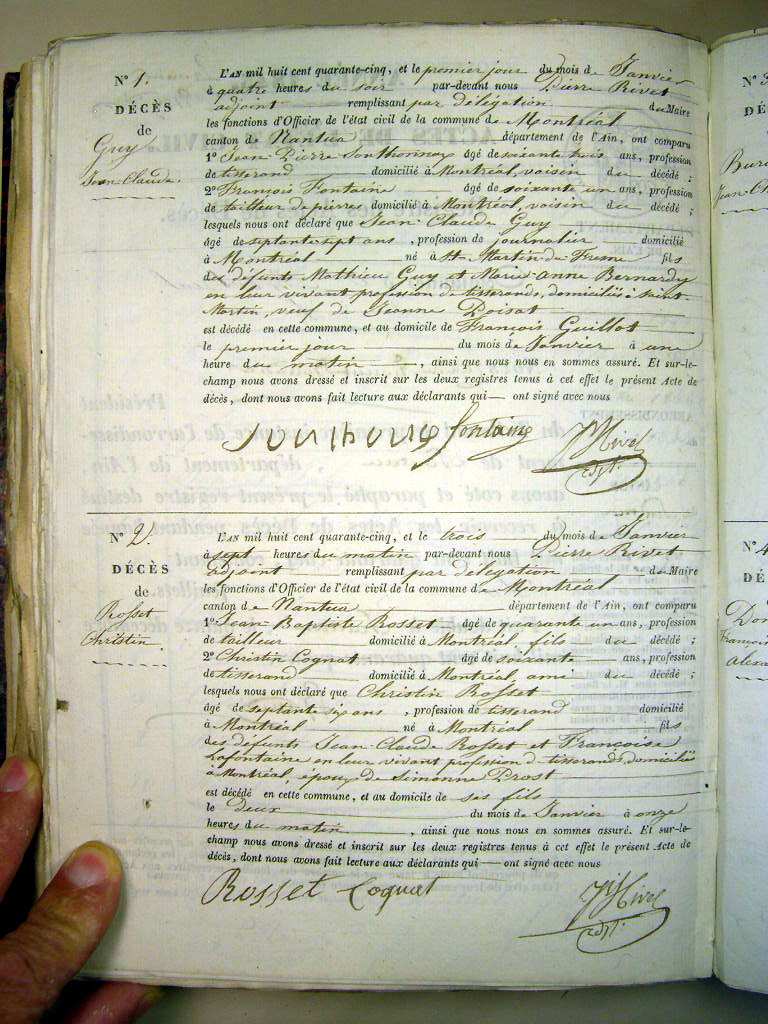 N° 1.
DÉCÈS
de
Guy
Jean Claude.
L'AN mil huit cent quarante-cinq, et le premier jour du mois de Janvier
à quatre heures du soir par-devant nous Pierre Rivet
adjoint remplissant par délégation de Maire
les fonctions d'Officier de l'état civil de la commune de Montréal
canton de Nantua département de l'Ain, ont comparu
1° Jean Pierre Sonthonnax âgé de soixante trois ans, profession
de tisserand domicilié à Montréal, voisin du décédé ;
2° François Fontaine âgé de soixante un ans, profession
de tailleur de pierres domicilié à Montréal, voisin du décédé ;
lesquels nous ont déclaré que Jean Claude Guy
âgé de septante sept ans, profession de journalier domicilié
à Montréal né à St Martin du Fresne fils
des défunts Mathieu Guy et Marie anne Bernardy
en leur vivant profession de tisserands, domiciliés à Saint
Martin, veuf de Jeanne Doisat
est décédé en cette commune, et au domicile de François Guillot
le premier jour du mois de Janvier à une
heure du matin, ainsi que nous nous en sommes assuré. Et sur-le-
champ nous avons dressé et inscrit sur les deux registres tenus à cet effet le présent Acte de
décès, dont nous avons fait lecture aux déclarants qui ont signé avec nous
fontaine Rivet
adjt.
N° 2.
DÉCÈS
de
Rosset
Christin.
L'AN mil huit cent quarante-cinq, et le trois du mois de Janvier
à sept heures du matin par-devant nous Pierre Rivet
adjoint remplissant par délégation de Maire
les fonctions d'Officier de l'état civil de la commune de Montréal
canton de Nantua département de l'Ain, ont comparu
1° Jean Baptiste Rosset âgé de quarante un ans, profession
de tailleur domicilié à Montréal, fils du décédé ;
2° Christin Cognat âgé de soixante ans, profession
de tisserand domicilié à Montréal, ami du décédé ;
lesquels nous ont déclaré que Christin Rosset
âgé de septante six ans, profession de tisserand domicilié
à Montréal né à Montréal fils
des défunts Jean Claude Rosset et Françoise
Lafontaine en leur vivant profession de tisserands, domiciliés
à Montréal, époux de Simonne Prost
est décédé en cette commune, et au domicile de ses fils
le deux du mois de Janvier à onze
heures du matin, ainsi que nous nous en sommes assuré. Et sur-le-
champ nous avons dressé et inscrit sur les deux registres tenus à cet effet le présent Acte de
décès, dont nous avons fait lecture aux déclarants qui ont signé avec nous
Rosset Cognat Rivet
adjt.
N° 3
DÉ
N° 4
DÉ